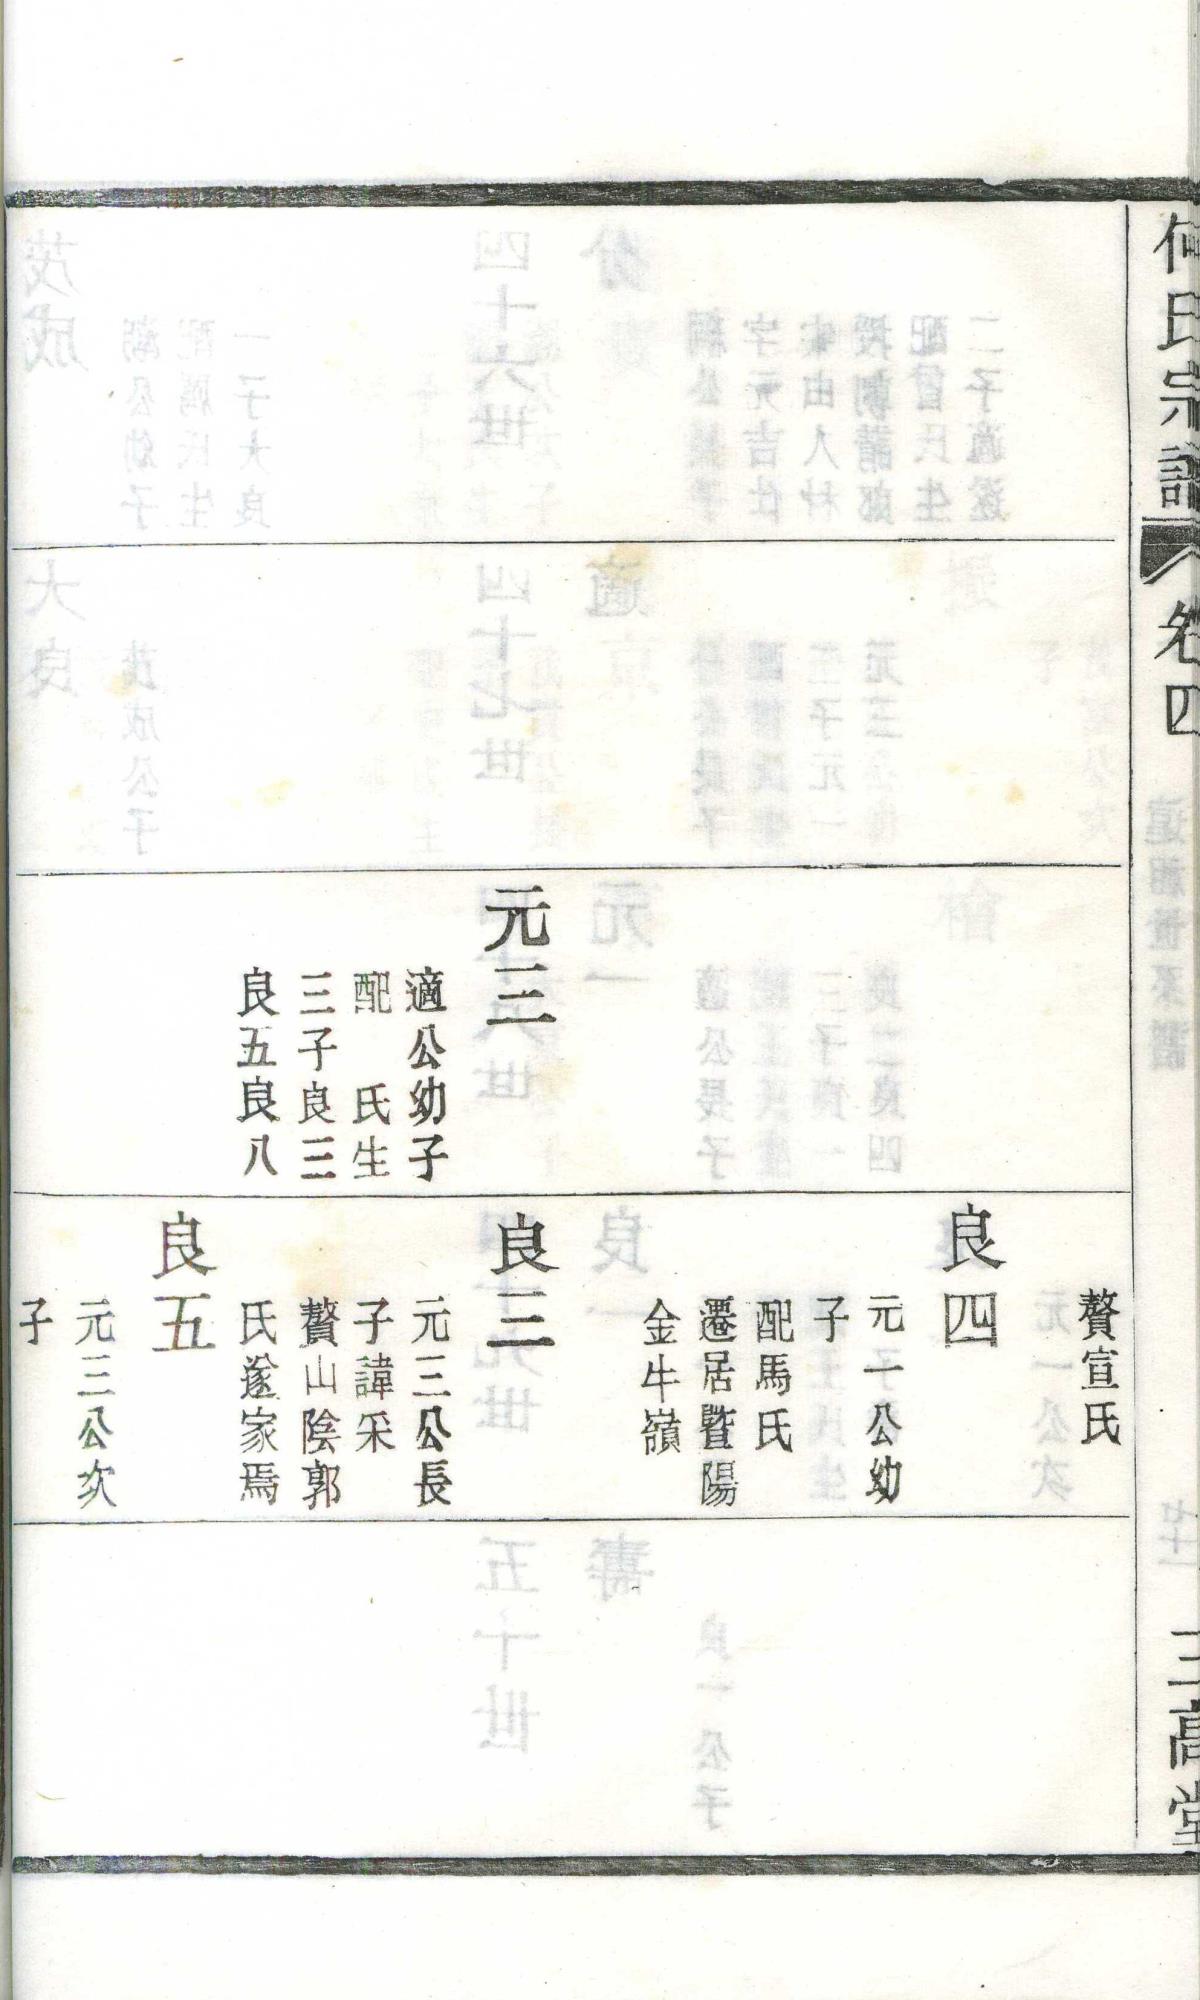 何氏宗譜
卷四
三高堂
元三
適公幼子
配 氏生
三子良三
良五良八
贅宣氏
良四
元一公幼
子
配馬氏
遷居暨陽
金牛嶺
良三
元三公長
子諱采
贅山陰郭
氏遂家焉
良五
元三公次
子